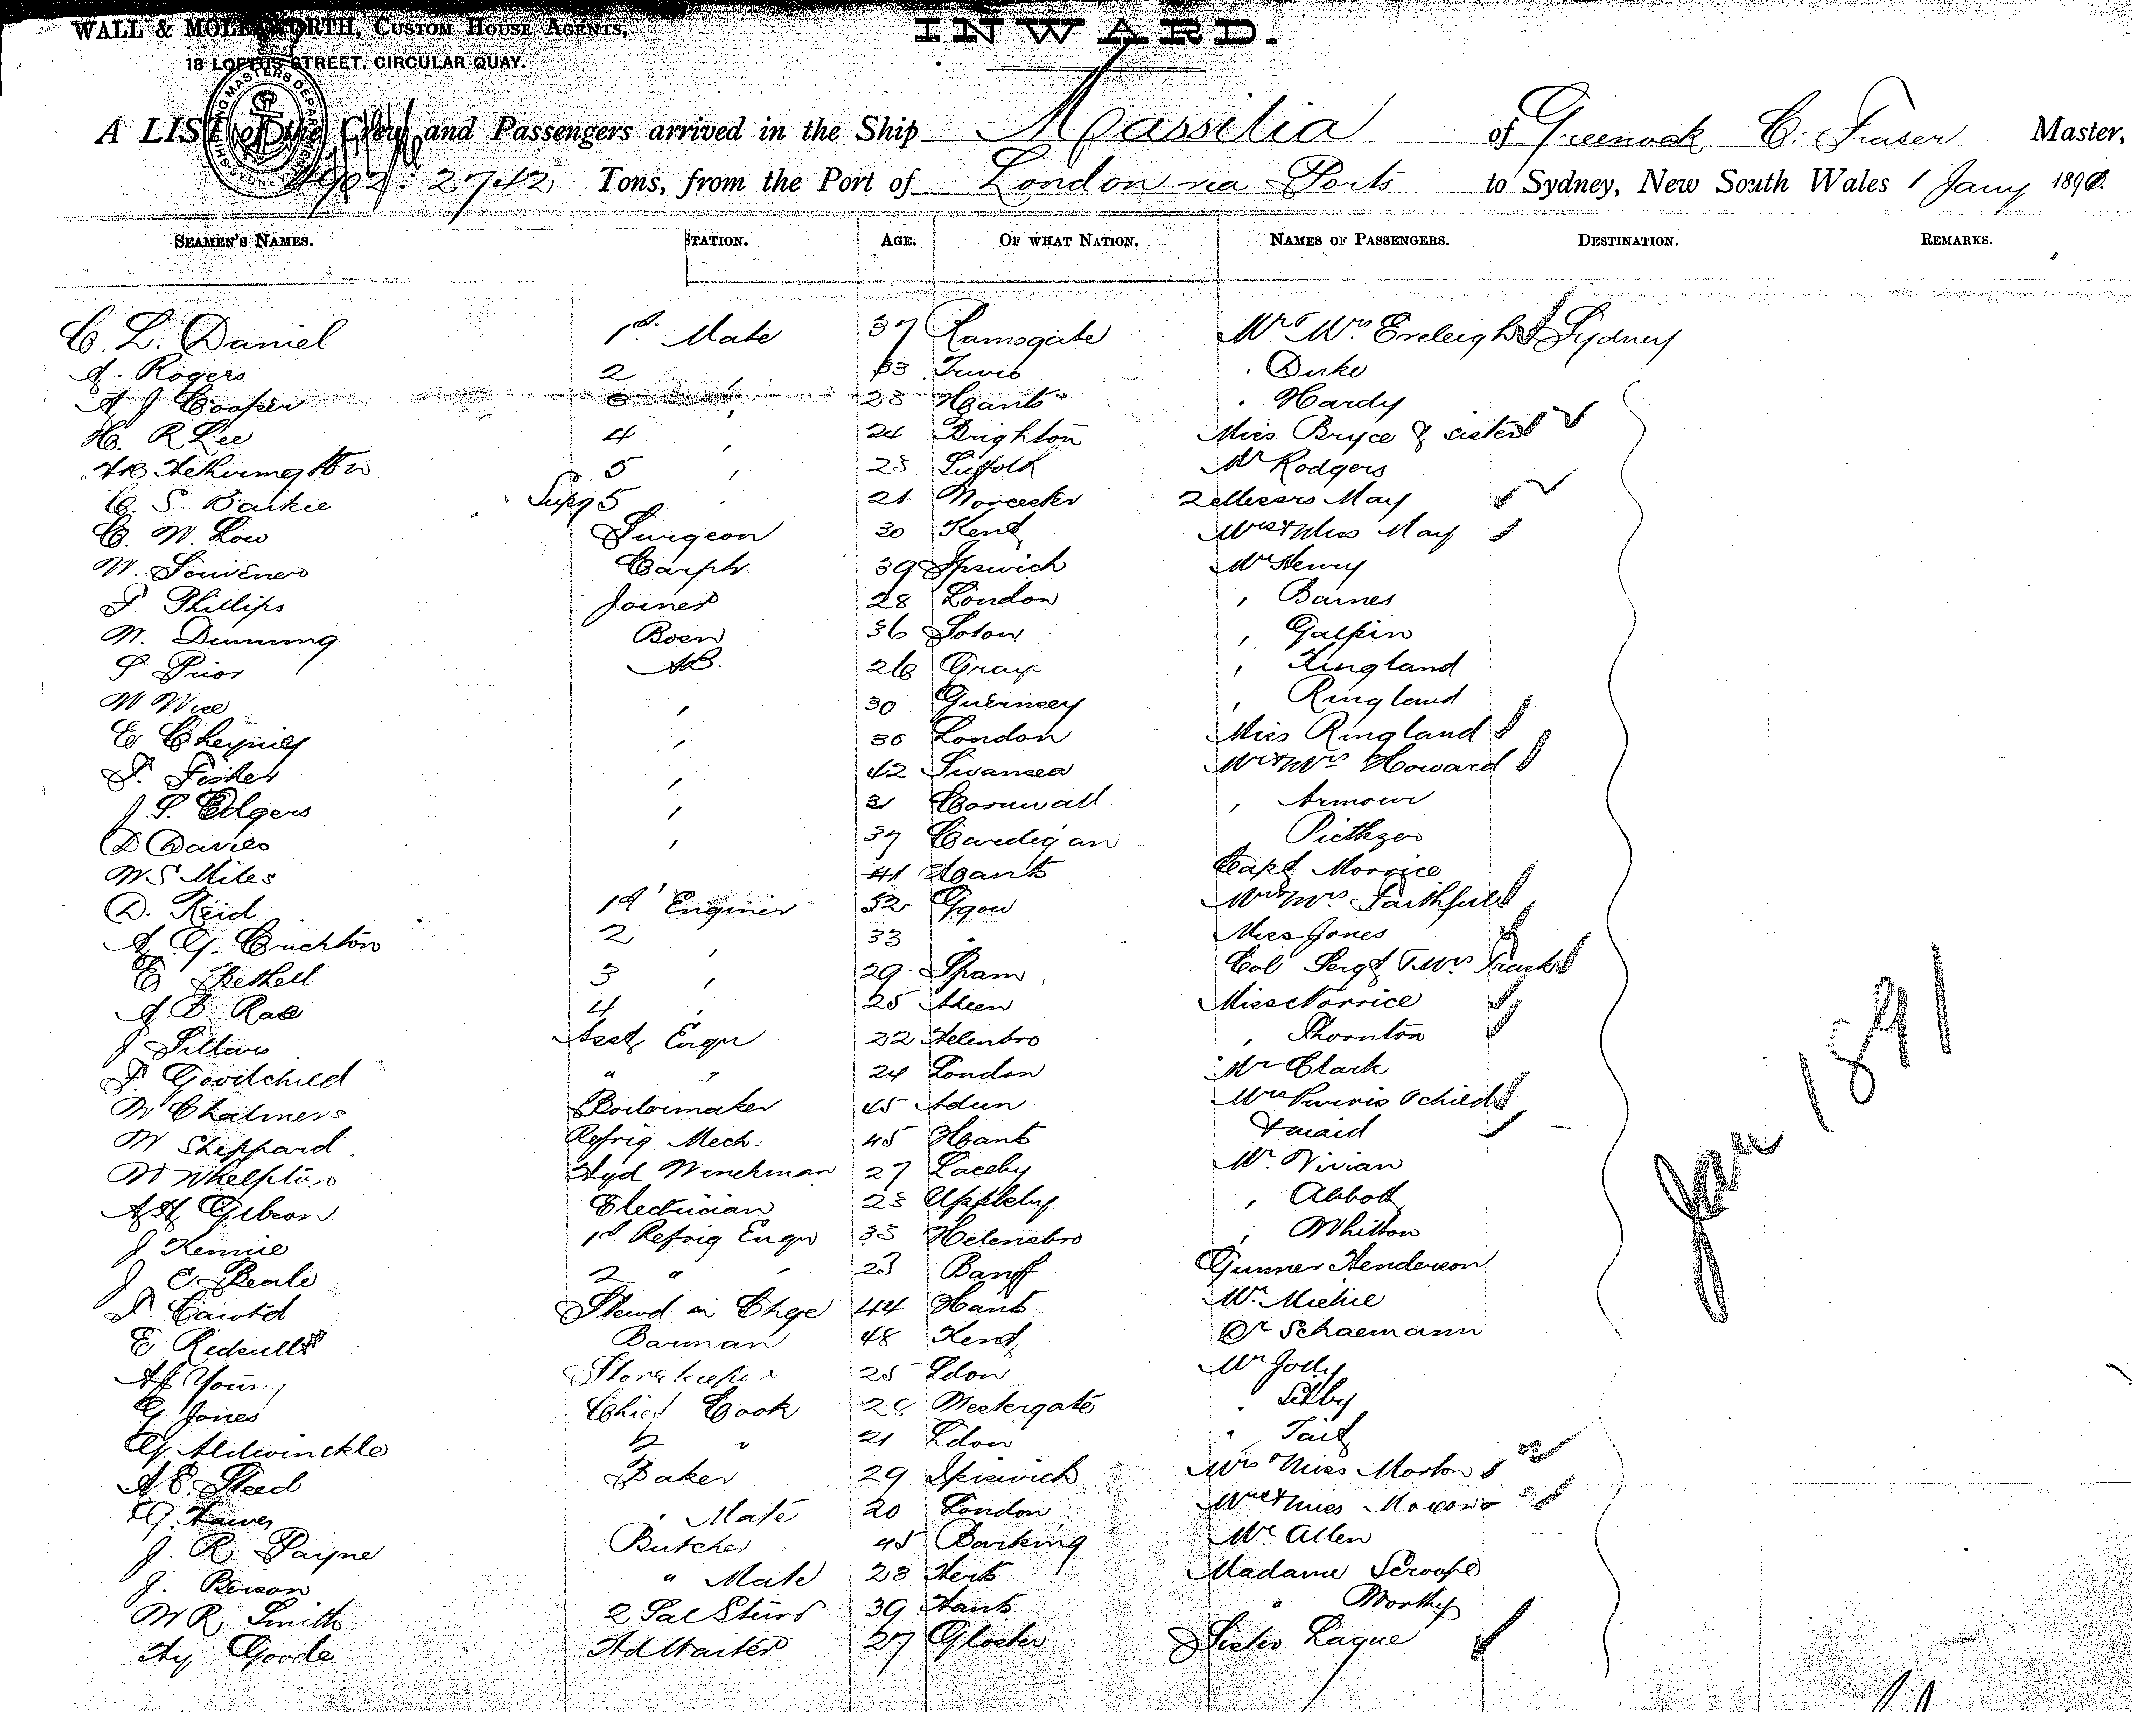 WALL & MOLESWORTH, CUSTOM HOUSE AGENTS,
18 LOFTUS STREET, CIRCULAR QUAY.
INWARD.
A LIST of the Crew and Passengers arrived in the Ship Massilia of Greenock C. Fraser Master,
2742 Tons, from the Port of London via Ports to Sydney, New South Wales 1 Jany 189
SEAMEN'S NAMES. STATION. AGE. OF WHAT NATION. NAMES OF PASSENGERS. DESTINATION. REMARKS.
C. L. Daniel 1st Mate 37 Ramsgate Mr Mrs Eveleigh Sydney
A. Rogers 2 " 33 Duke
A J Cooper " 23 Hants " Hardy
H. R Lee 4 " 24 Brighton Miss Bryce & sister
5 " 23 Suffolk Mr Rodgers
C. S. Barkie Supy 5 21 Worcester May
C. W. Low Surgeon 30 Kent Mrs & Miss May
W. Scrivener Carptr 39 Ipswich Mr Henry
P. Phillips Joiner 28 London " Barnes
W. Dunning Bosn 36 Soton " Galpin
P Prior AB. 26 Grays " Kingland
W Wice " 30 Guernsey " Ringland
" 30 London Miss Ringland
Fisher " 42 Swansea Mr & Mrs Howard
J. S. Edgers " 21 Cornwall " Armour
D Davies " 37 Cardigan
W. S Miles 41 Hants Capt Morrice
D. Reid 1st Engineer 52 Ggow Mr & Mrs Faithfull
A. G. Crichton 2 " 33 " Miss Jones
E Bethell 3 " 29 Col Sergt & Mrs
A D. Rae 4 " 25 Miss Norrice
Asst Engr 22 Helenbro " Thornton
Goodchild " " 24 London Mr Clark
W Chalmers Boilermaker 45 Mrs Purvis & child
W Sheppard Refrig Mech. 45 Hants & maid
W Whelpton Hyd Winchman 27 Laceby Mr. Vivian
A H Gibson Electrician 23 Appleby " Abbott
J Rennie 1st Refrig Engr 33 Helensbro " Whitton
J C. Beale 2 " " 23 Banff Gunner Henderson
Stewd in Chge 44 Hants Mr. Michie
E Barman 48 Kent Dr Schaemann
A J Young Storekeeper 25 Ldon Mr Jolly
G Jones Chief Cook Westergate " Selby
G Aldwinckle 2 " 21 Ldon " Tait
A E. Steed Baker 29 Ipswich Mrs Miss Morton
G. Hawes " Mate 20 London
J. R. Payne Butcher 45 Barking Mr Allen
J. Benson " Mate 23 Herts Madame Scroope
W R. Smith 2 Sal Stwrd 39 Hants " Worthy
Hy Goode Hd Waiter 27 Gloster Sister Lague
Jan 1891